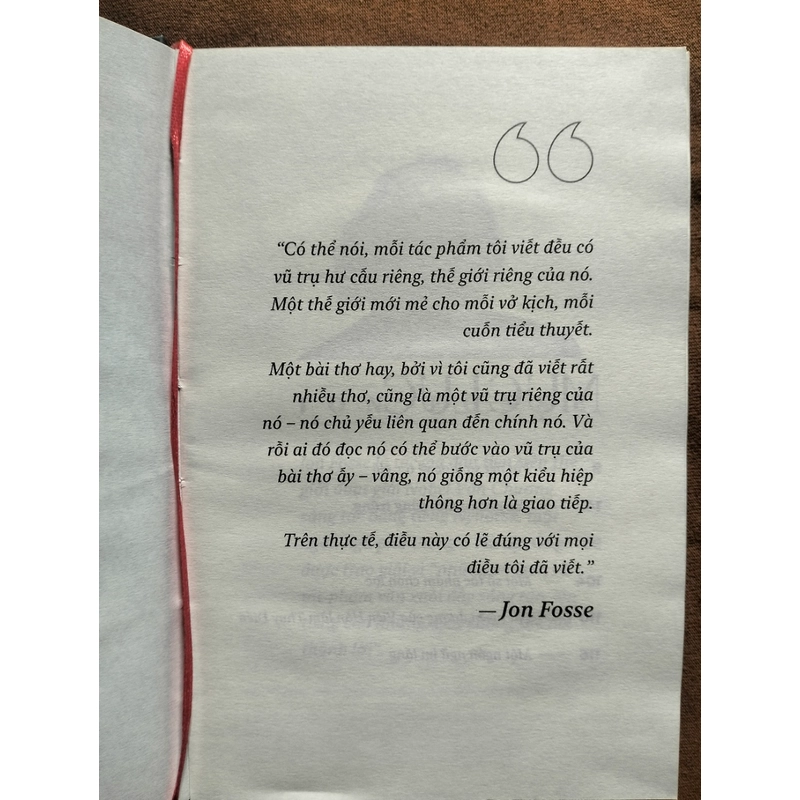 “Có thể nói, mỗi tác phẩm tôi viết đều có
vũ trụ hư cấu riêng, thế giới riêng của nó.
Một thế giới mới mẻ cho mỗi vở kịch, mỗi
cuốn tiểu thuyết.
Một bài thơ hay, bởi vì tôi cũng đã viết rất
nhiều thơ, cũng là một vũ trụ riêng của
nó – nó chủ yếu liên quan đến chính nó. Và
rồi ai đó đọc nó có thể bước vào vũ trụ của
bài thơ ấy – vâng, nó giống một kiểu hiệp
thông hơn là giao tiếp.
Trên thực tế, điều này có lẽ đúng với mọi
điều tôi đã viết.”
— Jon Fosse